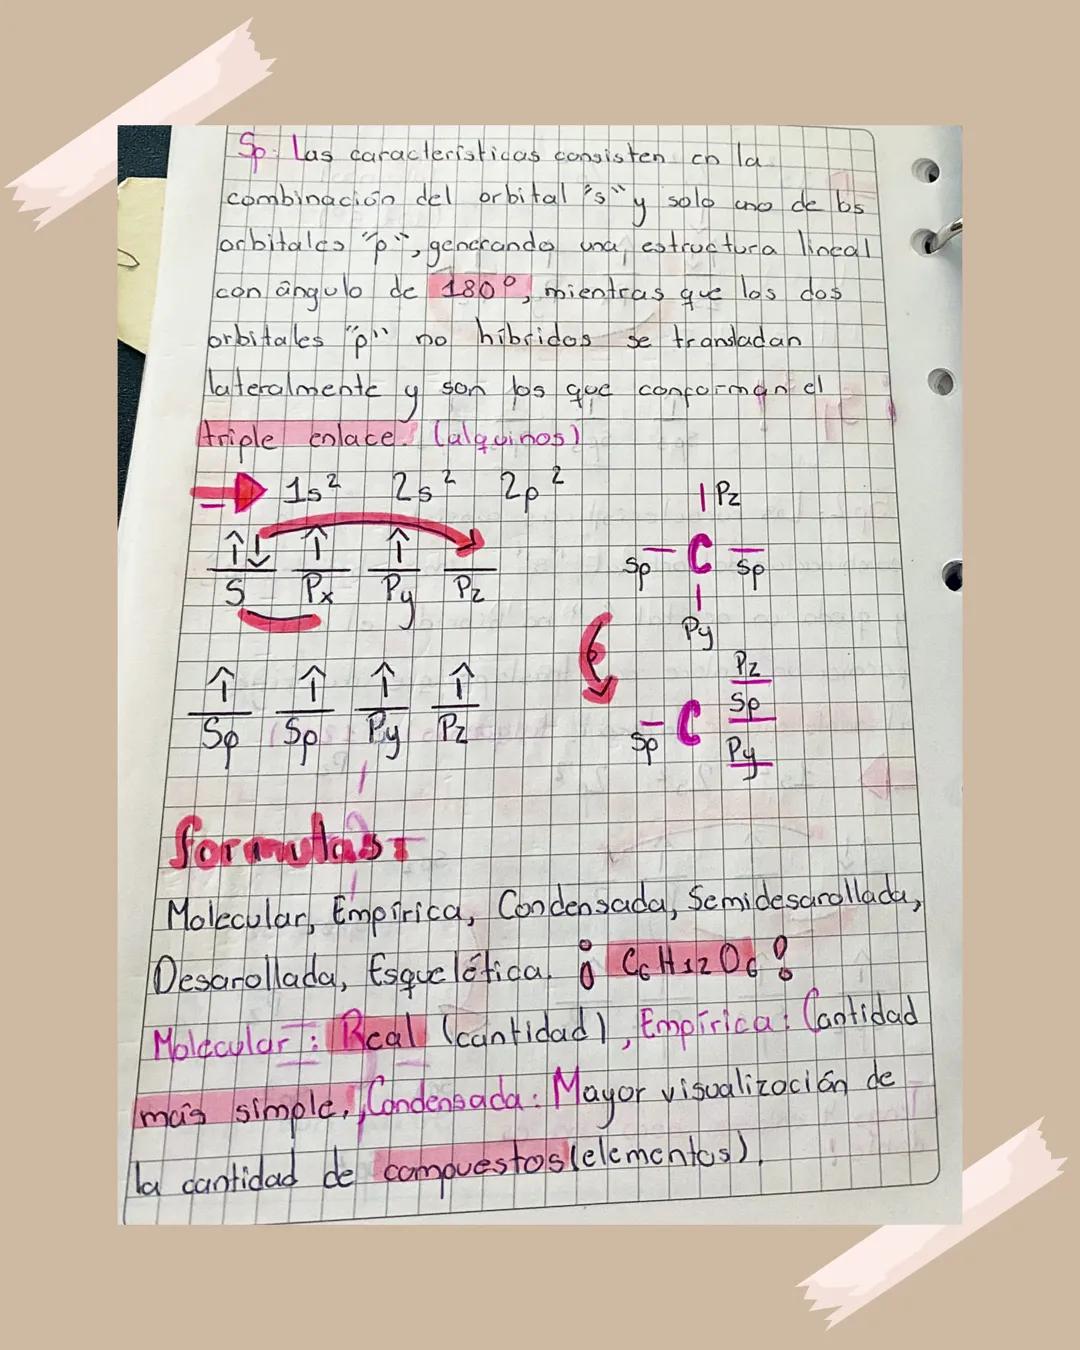 Sp: Las características consisten en la
combinación del orbital "s" y solo uno de los
orbitales "p", generando una estructura lineal
con ángulo de 180°, mientras que los dos
orbitales "p" no híbridos se transladan
lateralmente y son los que conforman el
triple enlace. (alquinos)
1s² 2s² 2p²
S Px Py Pz
Sp Sp Py Pz
Pz
Sp C Sp
Py
Pz
Sp C Sp
Py
formulas:
Molecular, Empírica, Condensada, Semidesarollada,
Desarollada, Esquelética. ¡ C6H12O6 !
Molecular: Real (cantidad), Empírica: Cantidad
más simple, Condensada: Mayor visualización de
la cantidad de compuestos (elementos).